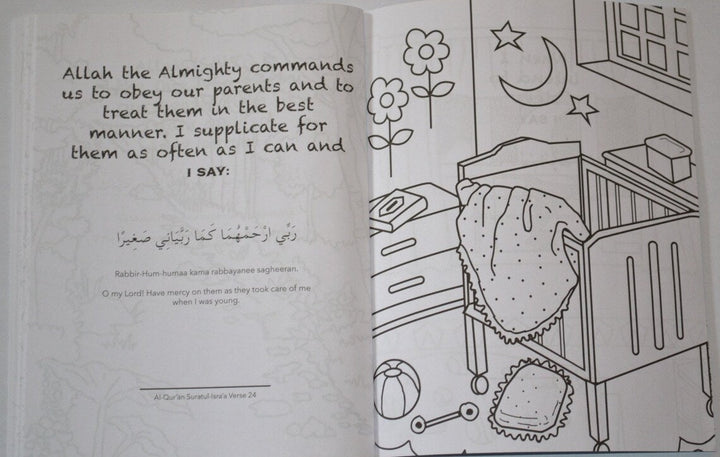 Allah the Almighty commands
us to obey our parents and to
treat them in the best
manner. I supplicate for
them as often as I can and
I SAY:
رَبِّي ارْحَمْهُمَا كَمَا رَبَّيَانِي صَغِيرًا
Rabbir-Hum-humaa kama rabbayanee sagheeran.
O my Lord! Have mercy on them as they took care of me
when I was young.
Al-Qur'an Suratul-Isra'a Verse 24